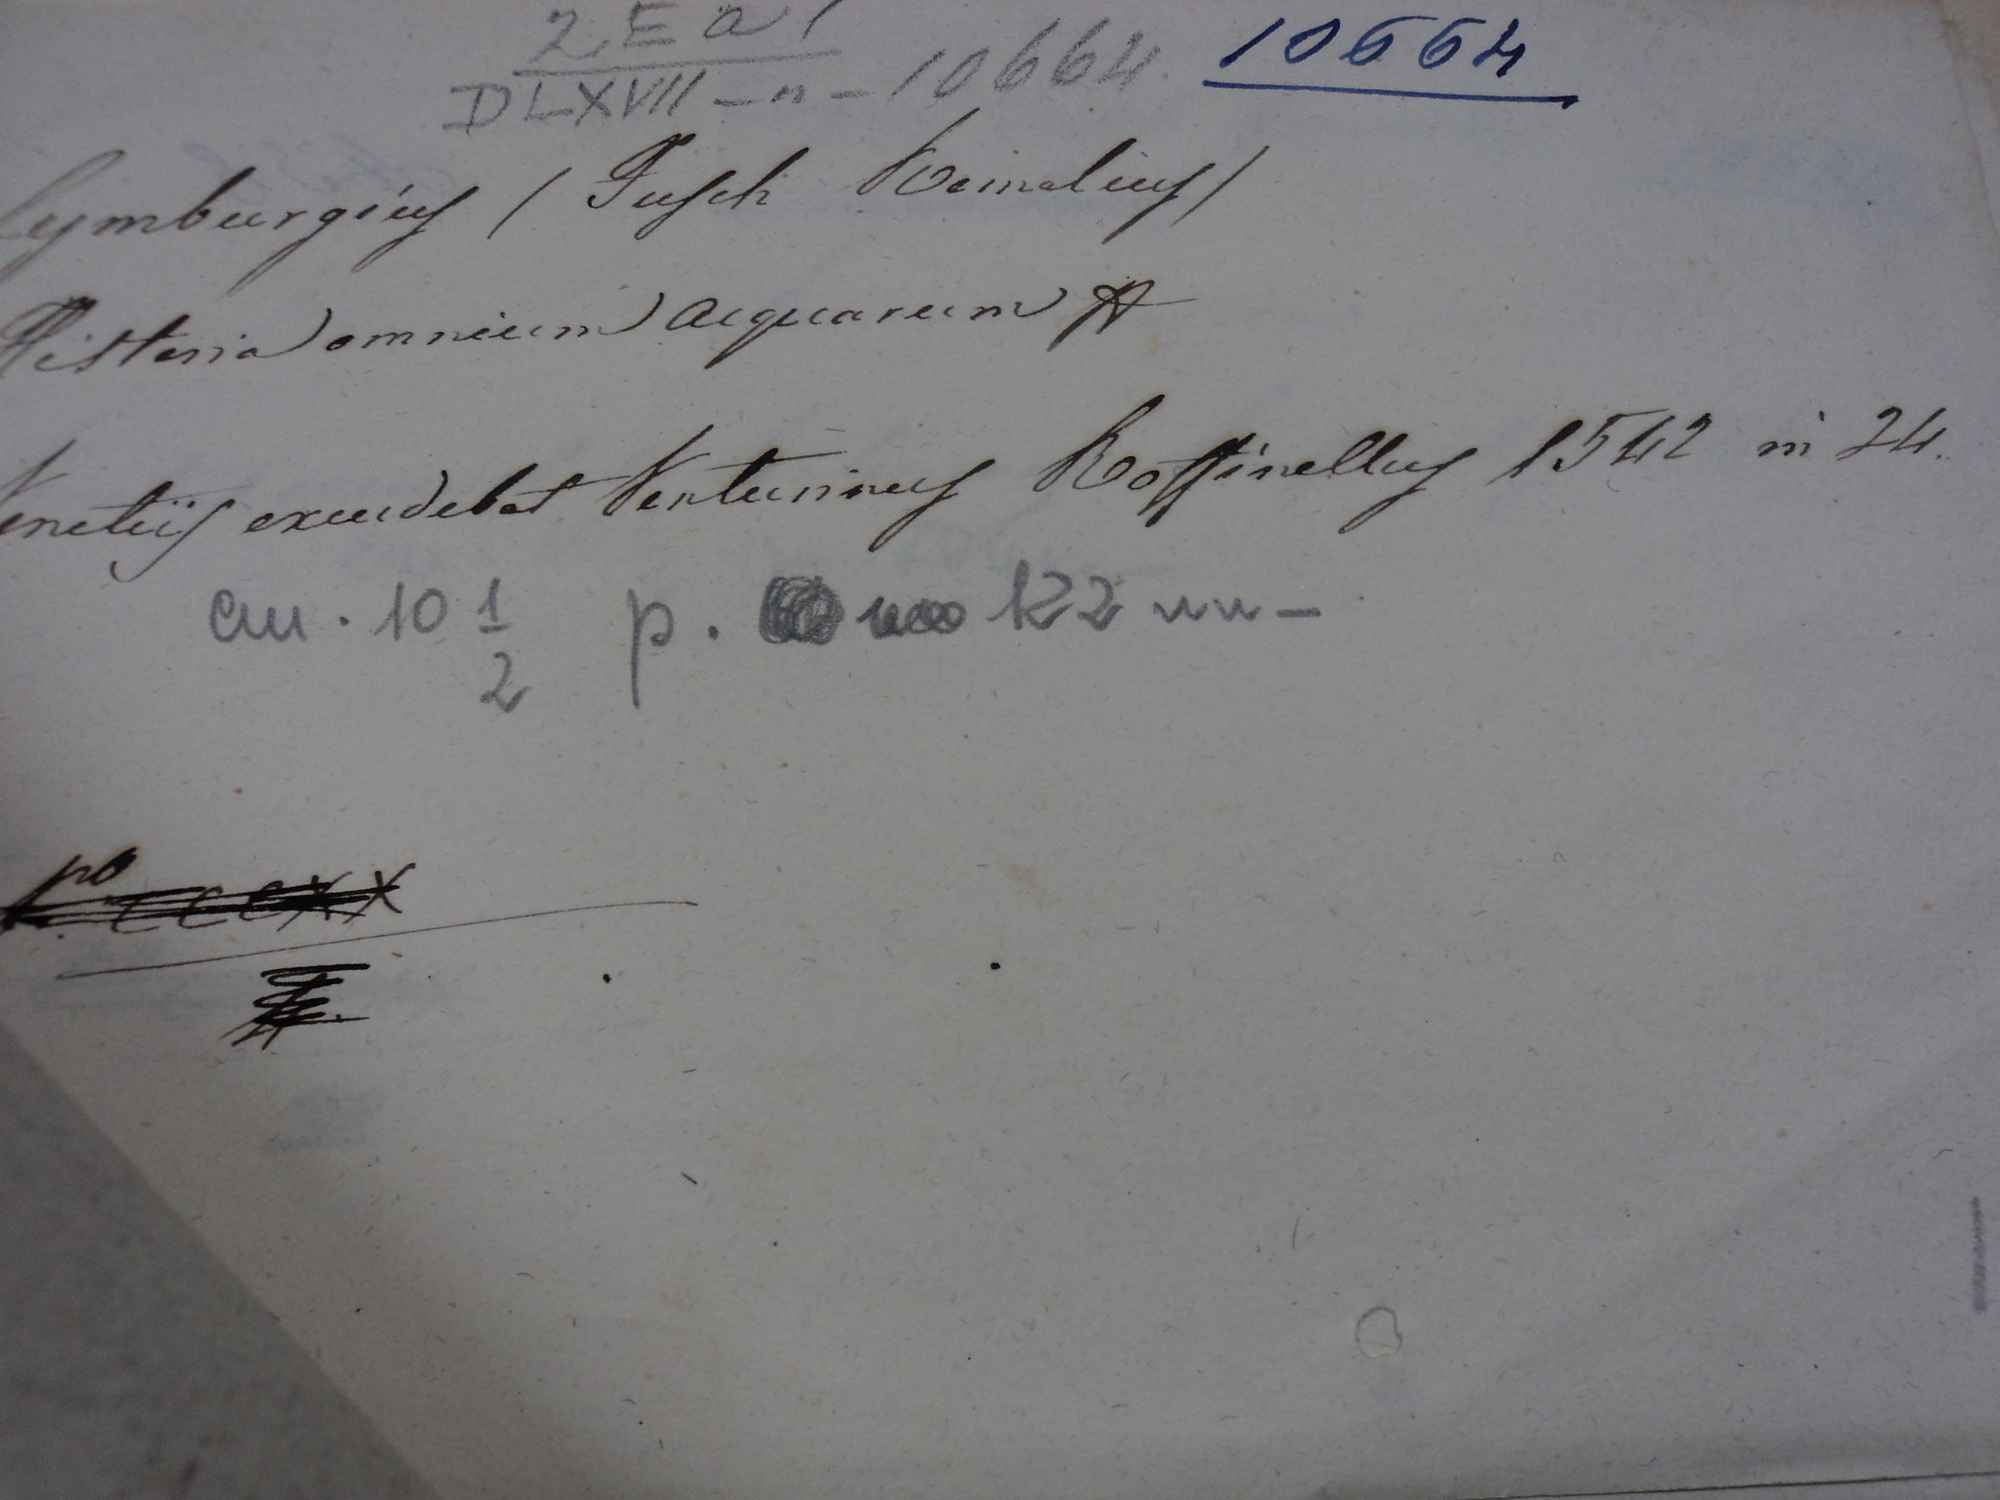 DLXVII - n - 10664. 10664
Lymburgius (Fusch Remalius)
Historia omnium aquarum &
Venetiis excudebat Venturinus Roffinellus 1542 in 24.
cm. 10 1/2 p. 122 nn -
po
CCCXX